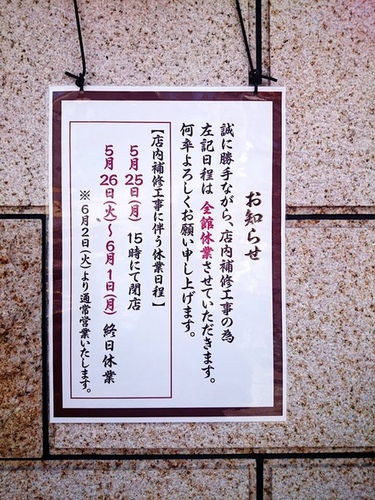 お知らせ
誠に勝手ながら、店内補修工事の為
左記日程は全館休業させていただきます。
何卒よろしくお願い申し上げます。
【店内補修工事に伴う休業日程】
5月25日(月) 15時にて閉店
5月26日(火)~6月1日(月) 終日休業
※6月2日(火)より通常営業いたします。